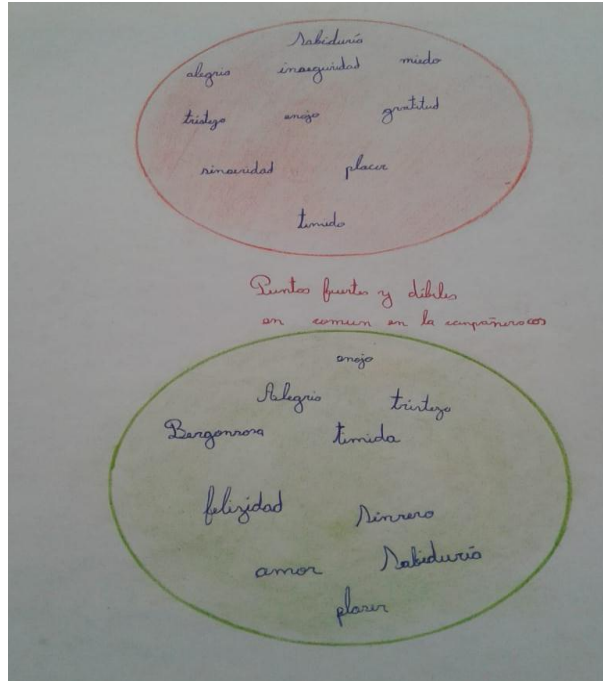 Sabiduría
alegria inseguridad miedo
tristeza enojo gratitud
sinceridad placer
timido
Puntos fuertes y débiles
en comun en la compañerosos
enojo
Alegria tristeza
Bergonrosa timida
felizidad Sinsero
amor Sabiduría
plaser